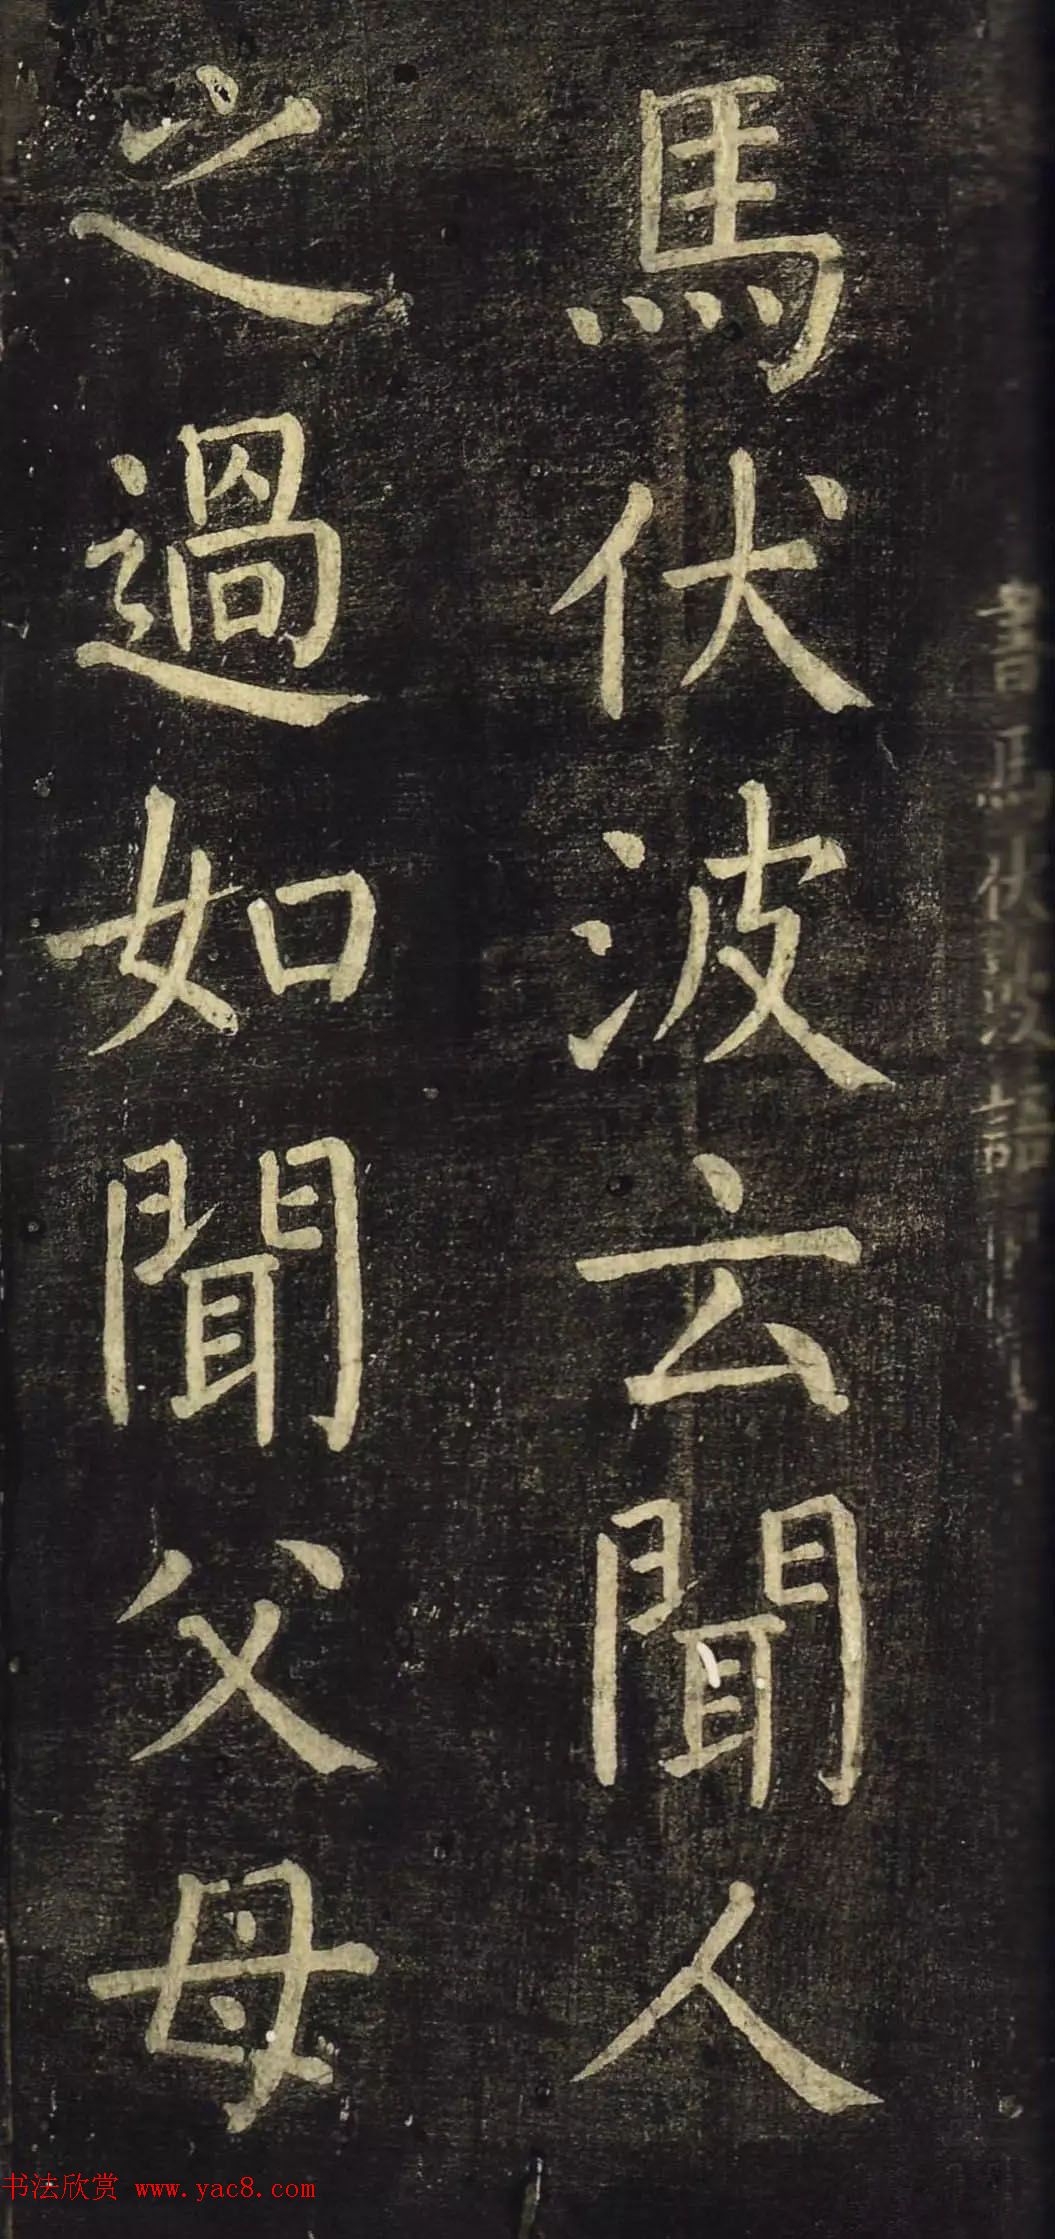 書馬伏波語
馬伏波云聞人
之過如聞父母
书法欣赏 www.yac8.com